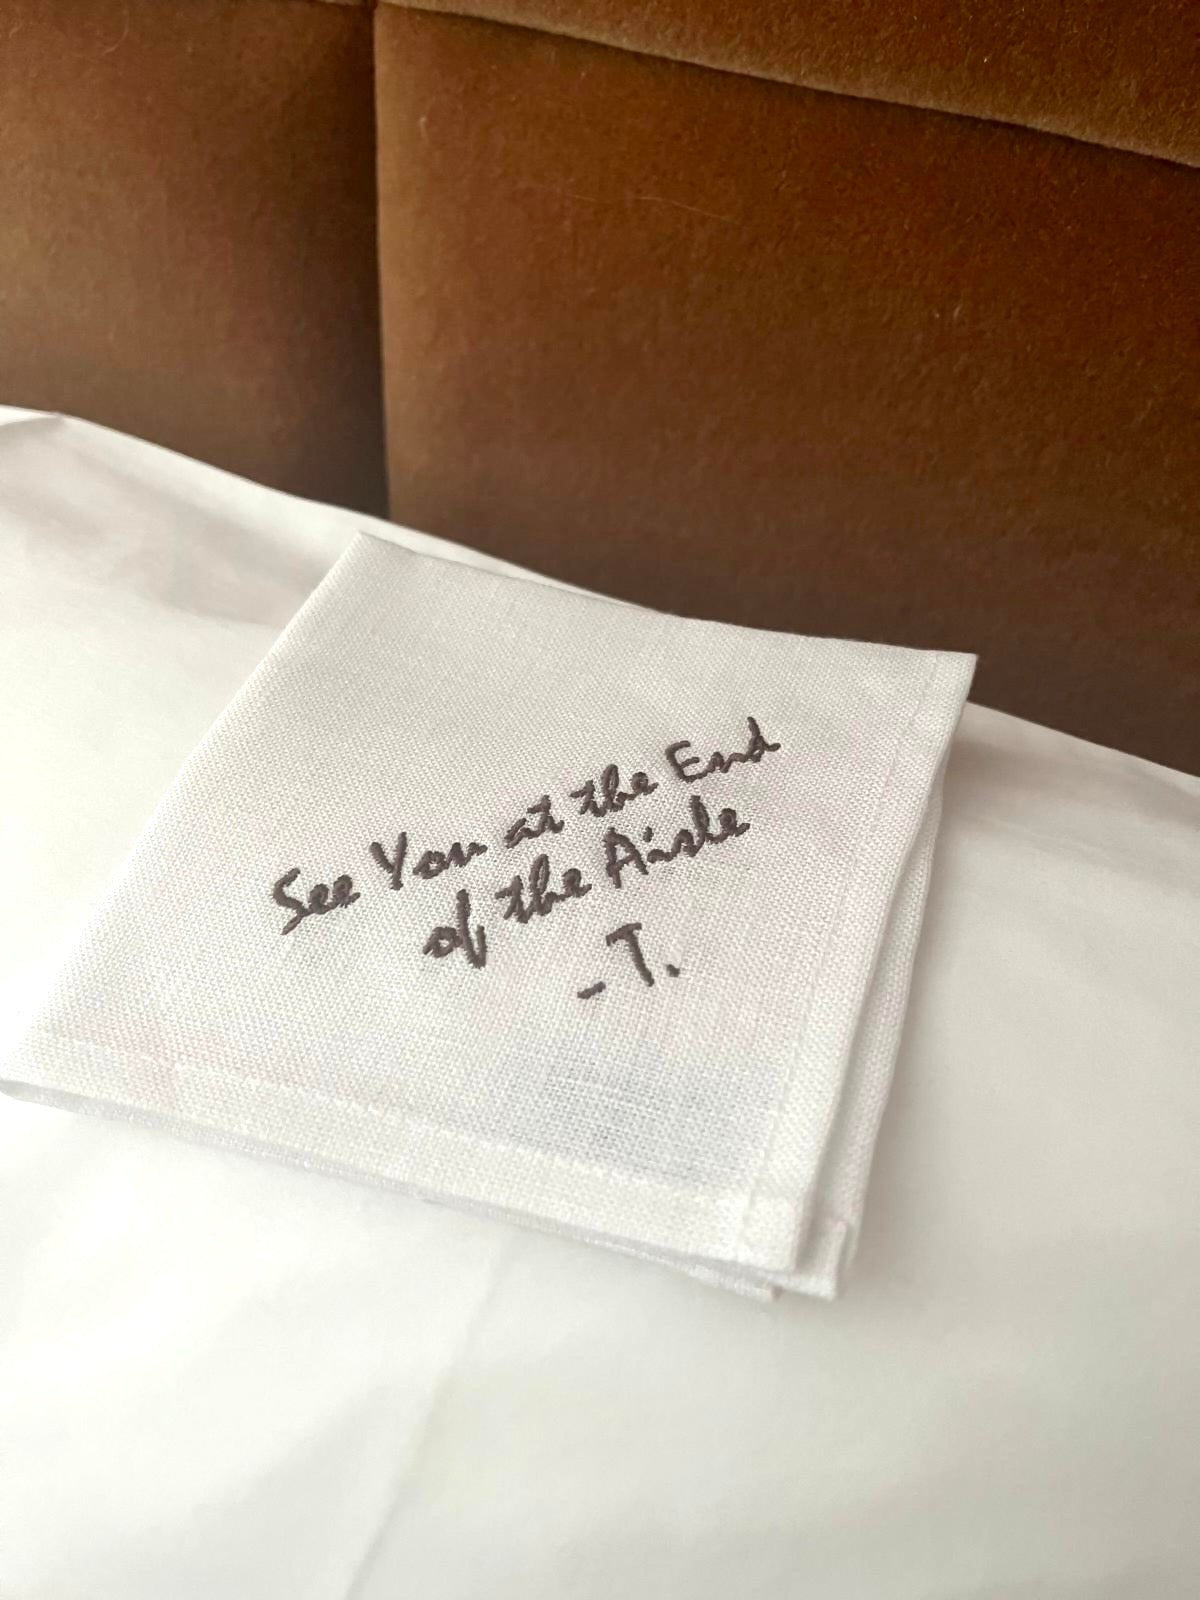 See You at the End
of the Aisle
- T.